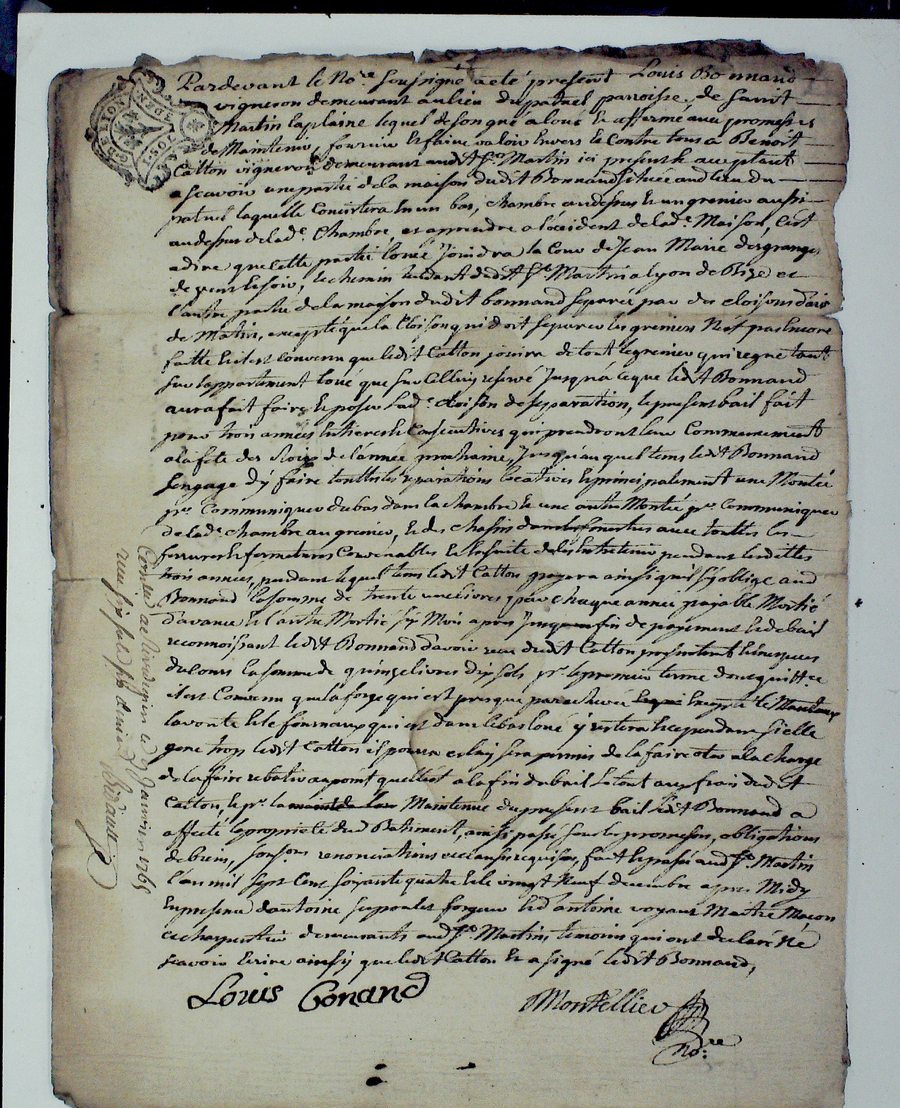 Pardevant le No.re soussigné a eté present Louis Bonnand
vigneron demeurant au lieu du patuel parroisse de Saint
Martin la plaine lequel de son gré a loué et affermé avec promesses
de Maintenir, fournir et faire valoir envers et Contre tous a Benoit
Catton vigneron demeurant aud.t S.t Martin ici present et acceptant
a scavoir une partie de la maison dudit Bonnand scituée aud. lieu du
patuel laquelle Consistera en un bas, chambre au dessus et un grenier aussi
au dessus de lad.e Chambre et a prendre a l'occident de lad.e Maison, c'est
a dire que cette partie louée Joindra la Cour de Jean Marie desgranges
de vent et soir, le chemin tendant dud.t S.t Martin a Lyon de Bize et
l'autre partie de la maison dudit bonnand separée par des cloisons d'ais
de Matin, excepté que la Cloison qui doit separer les greniers N'est pas Encore
faitte et il est convenu que ledit Catton jouira de tout le grenier qui regne tant
sur l'appartement loué que sur celluy reservé Jusqu'a ce que ledit Bonnand
aura fait faire et poser lad.e cloison de separation, le present bail fait
pour trois années entieres et Consecutives qui prendront leur Commencement
a la fete des Rois de l'année prochaine, Jusqu'au quel tems ledit Bonnand
s'engage d'y faire touttes les reparations locatives et principalement une Montée
p.r Communiquer du bas dans la chambre et une autre Montée p.r Communiquer
de lad.e chambre au grenier, et des chassis dans les fenetres avec touttes les
ferrures et fermetures Convenables et les de les Entretenir pendant lesdittes
trois années, pendant lequel tems ledit Catton payera ainsi qu'il s'y oblige aud.
Bonnand la somme de trente une livres par chaque année payable Moitié
d'avance et l'autre Moitié six Mois apres Jusqu'a fin de payement et de bail
reconnoissant ledit Bonnand d'avoir reçu dudit Catton presentement en especes
de cours la somme de quinze livres dix sols p.r le premier terme dont quitt.ce
il est Convenu que la forge qui est presque parachevée excepté le Manteau
la voute et le fourneaux qui est dans le bas loué y restera et cependant si elle
gene trop ledit Catton il pourra et luy sera permis de la faire oter a la charge
de la faire rebatir au point quelle est a la fin du bail le tout aux frais dudit
Catton, et p.r la Maintenue du present bail ledit Bonnand a
affecté la proprieté dud. Batiment, ainsi passé sous les promesses, obligations
de biens, renonciations et clauses requises, fait et passé aud. S.t Martin
l'an mil sept Cent soixante quatre et le vingt Neuf decembre apres Midy
En presence d'antoine forgeur et d'antoine voyant Maitre Maçon
et charpentier demeurants aud. S.t Martin temoins qui ont declaré Ne
scavoir ecrire ainsy que ledit Catton et a signé ledit Bonnand,
Louis Bonand
Montellier
No.re
LYON
Controllé a Rivedegier le Janvier 1765